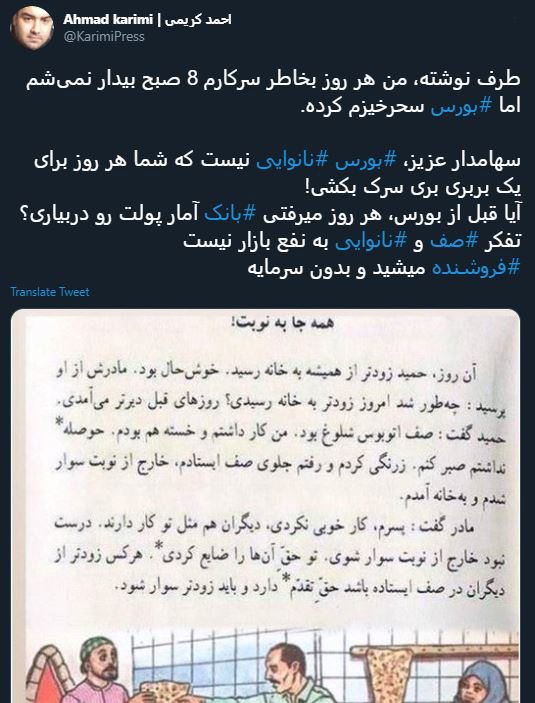 Ahmad karimi | احمد کریمی
@KarimiPress
طرف نوشته، من هر روز بخاطر سرکارم 8 صبح بیدار نمی‌شم
اما #بورس سحرخیزم کرده.
سهامدار عزیز، #بورس #نانوایی نیست که شما هر روز برای
یک بربری بری سرک بکشی!
آیا قبل از بورس، هر روز میرفتی #بانک آمار پولت رو دربیاری؟
تفکر #صف و #نانوایی به نفع بازار نیست
#فروشنده میشید و بدون سرمایه
Translate Tweet
همه جا به نوبت!
آن روز، حمید زودتر از همیشه به خانه رسید. خوش‌حال بود. مادرش از او
پرسید : چه‌طور شد امروز زودتر به خانه رسیدی؟ روزهای قبل دیرتر می‌آمدی.
حمید گفت : صف اتوبوس شلوغ بود. من کار داشتم و خسته هم بودم. حوصله*
نداشتم صبر کنم. زرنگی کردم و رفتم جلوی صف ایستادم، خارج از نوبت سوار
شدم و به‌خانه آمدم.
مادر گفت : پسرم، کار خوبی نکردی، دیگران هم مثل تو کار دارند. درست
نبود خارج از نوبت سوار شوی. تو حقّ آن‌ها را ضایع کردی*. هرکس زودتر از
دیگران در صف ایستاده باشد حقّ تقدّم* دارد و باید زودتر سوار شود.